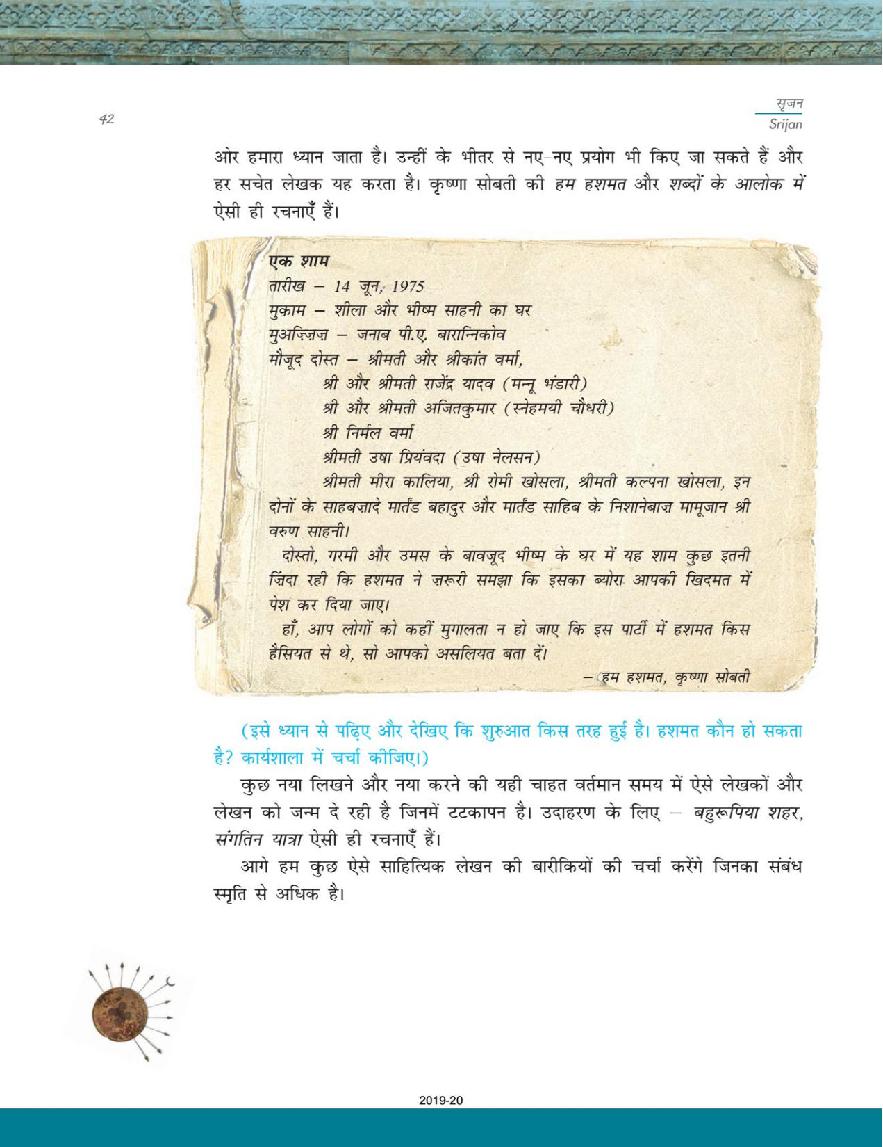 42
सृजन
Srijan
ओर हमारा ध्यान जाता है। उन्हीं के भीतर से नए-नए प्रयोग भी किए जा सकते हैं और
हर सचेत लेखक यह करता है। कृष्णा सोबती की हम हशमत और शब्दों के आलोक में
ऐसी ही रचनाएँ हैं।
एक शाम
तारीख – 14 जून, 1975
मुकाम – शीला और भीष्म साहनी का घर
मुअज़्ज़िज़ – जनाब पी.ए. बारान्निकोव
मौजूद दोस्त – श्रीमती और श्रीकांत वर्मा,
श्री और श्रीमती राजेंद्र यादव (मन्नू भंडारी)
श्री और श्रीमती अजितकुमार (स्नेहमयी चौधरी)
श्री निर्मल वर्मा
श्रीमती उषा प्रियंवदा (उषा नेलसन)
श्रीमती मीरा कालिया, श्री रोमी खोसला, श्रीमती कल्पना खोसला, इन
दोनों के साहबज़ादे मार्तंड बहादुर और मार्तंड साहिब के निशानेबाज़ मामूजान श्री
वरुण साहनी।
दोस्तो, गरमी और उमस के बावजूद भीष्म के घर में यह शाम कुछ इतनी
ज़िंदा रही कि हशमत ने ज़रूरी समझा कि इसका ब्योरा आपकी खिदमत में
पेश कर दिया जाए।
हाँ, आप लोगों को कहीं मुगालता न हो जाए कि इस पार्टी में हशमत किस
हैसियत से थे, सो आपको असलियत बता दें।
– हम हशमत, कृष्णा सोबती
(इसे ध्यान से पढ़िए और देखिए कि शुरुआत किस तरह हुई है। हशमत कौन हो सकता
है? कार्यशाला में चर्चा कीजिए।)
कुछ नया लिखने और नया करने की यही चाहत वर्तमान समय में ऐसे लेखकों और
लेखन को जन्म दे रही है जिनमें टटकापन है। उदाहरण के लिए – बहुरूपिया शहर,
संगतिन यात्रा ऐसी ही रचनाएँ हैं।
आगे हम कुछ ऐसे साहित्यिक लेखन की बारीकियों की चर्चा करेंगे जिनका संबंध
स्मृति से अधिक है।
2019-20